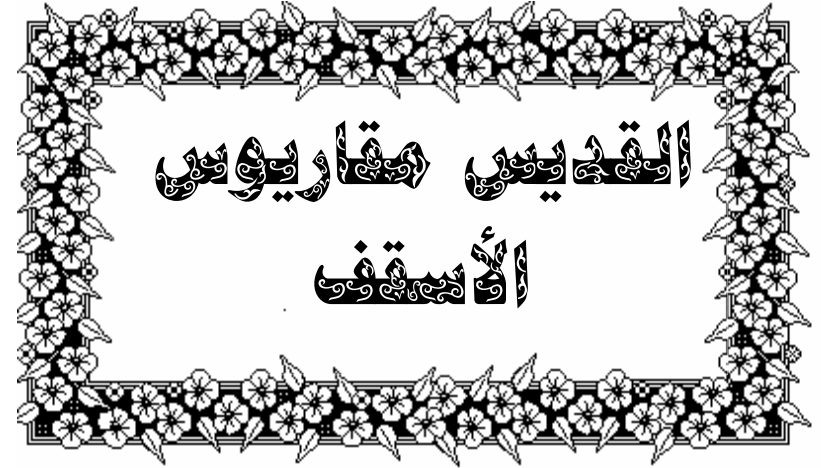 القديس مقاريوس
الأسقف